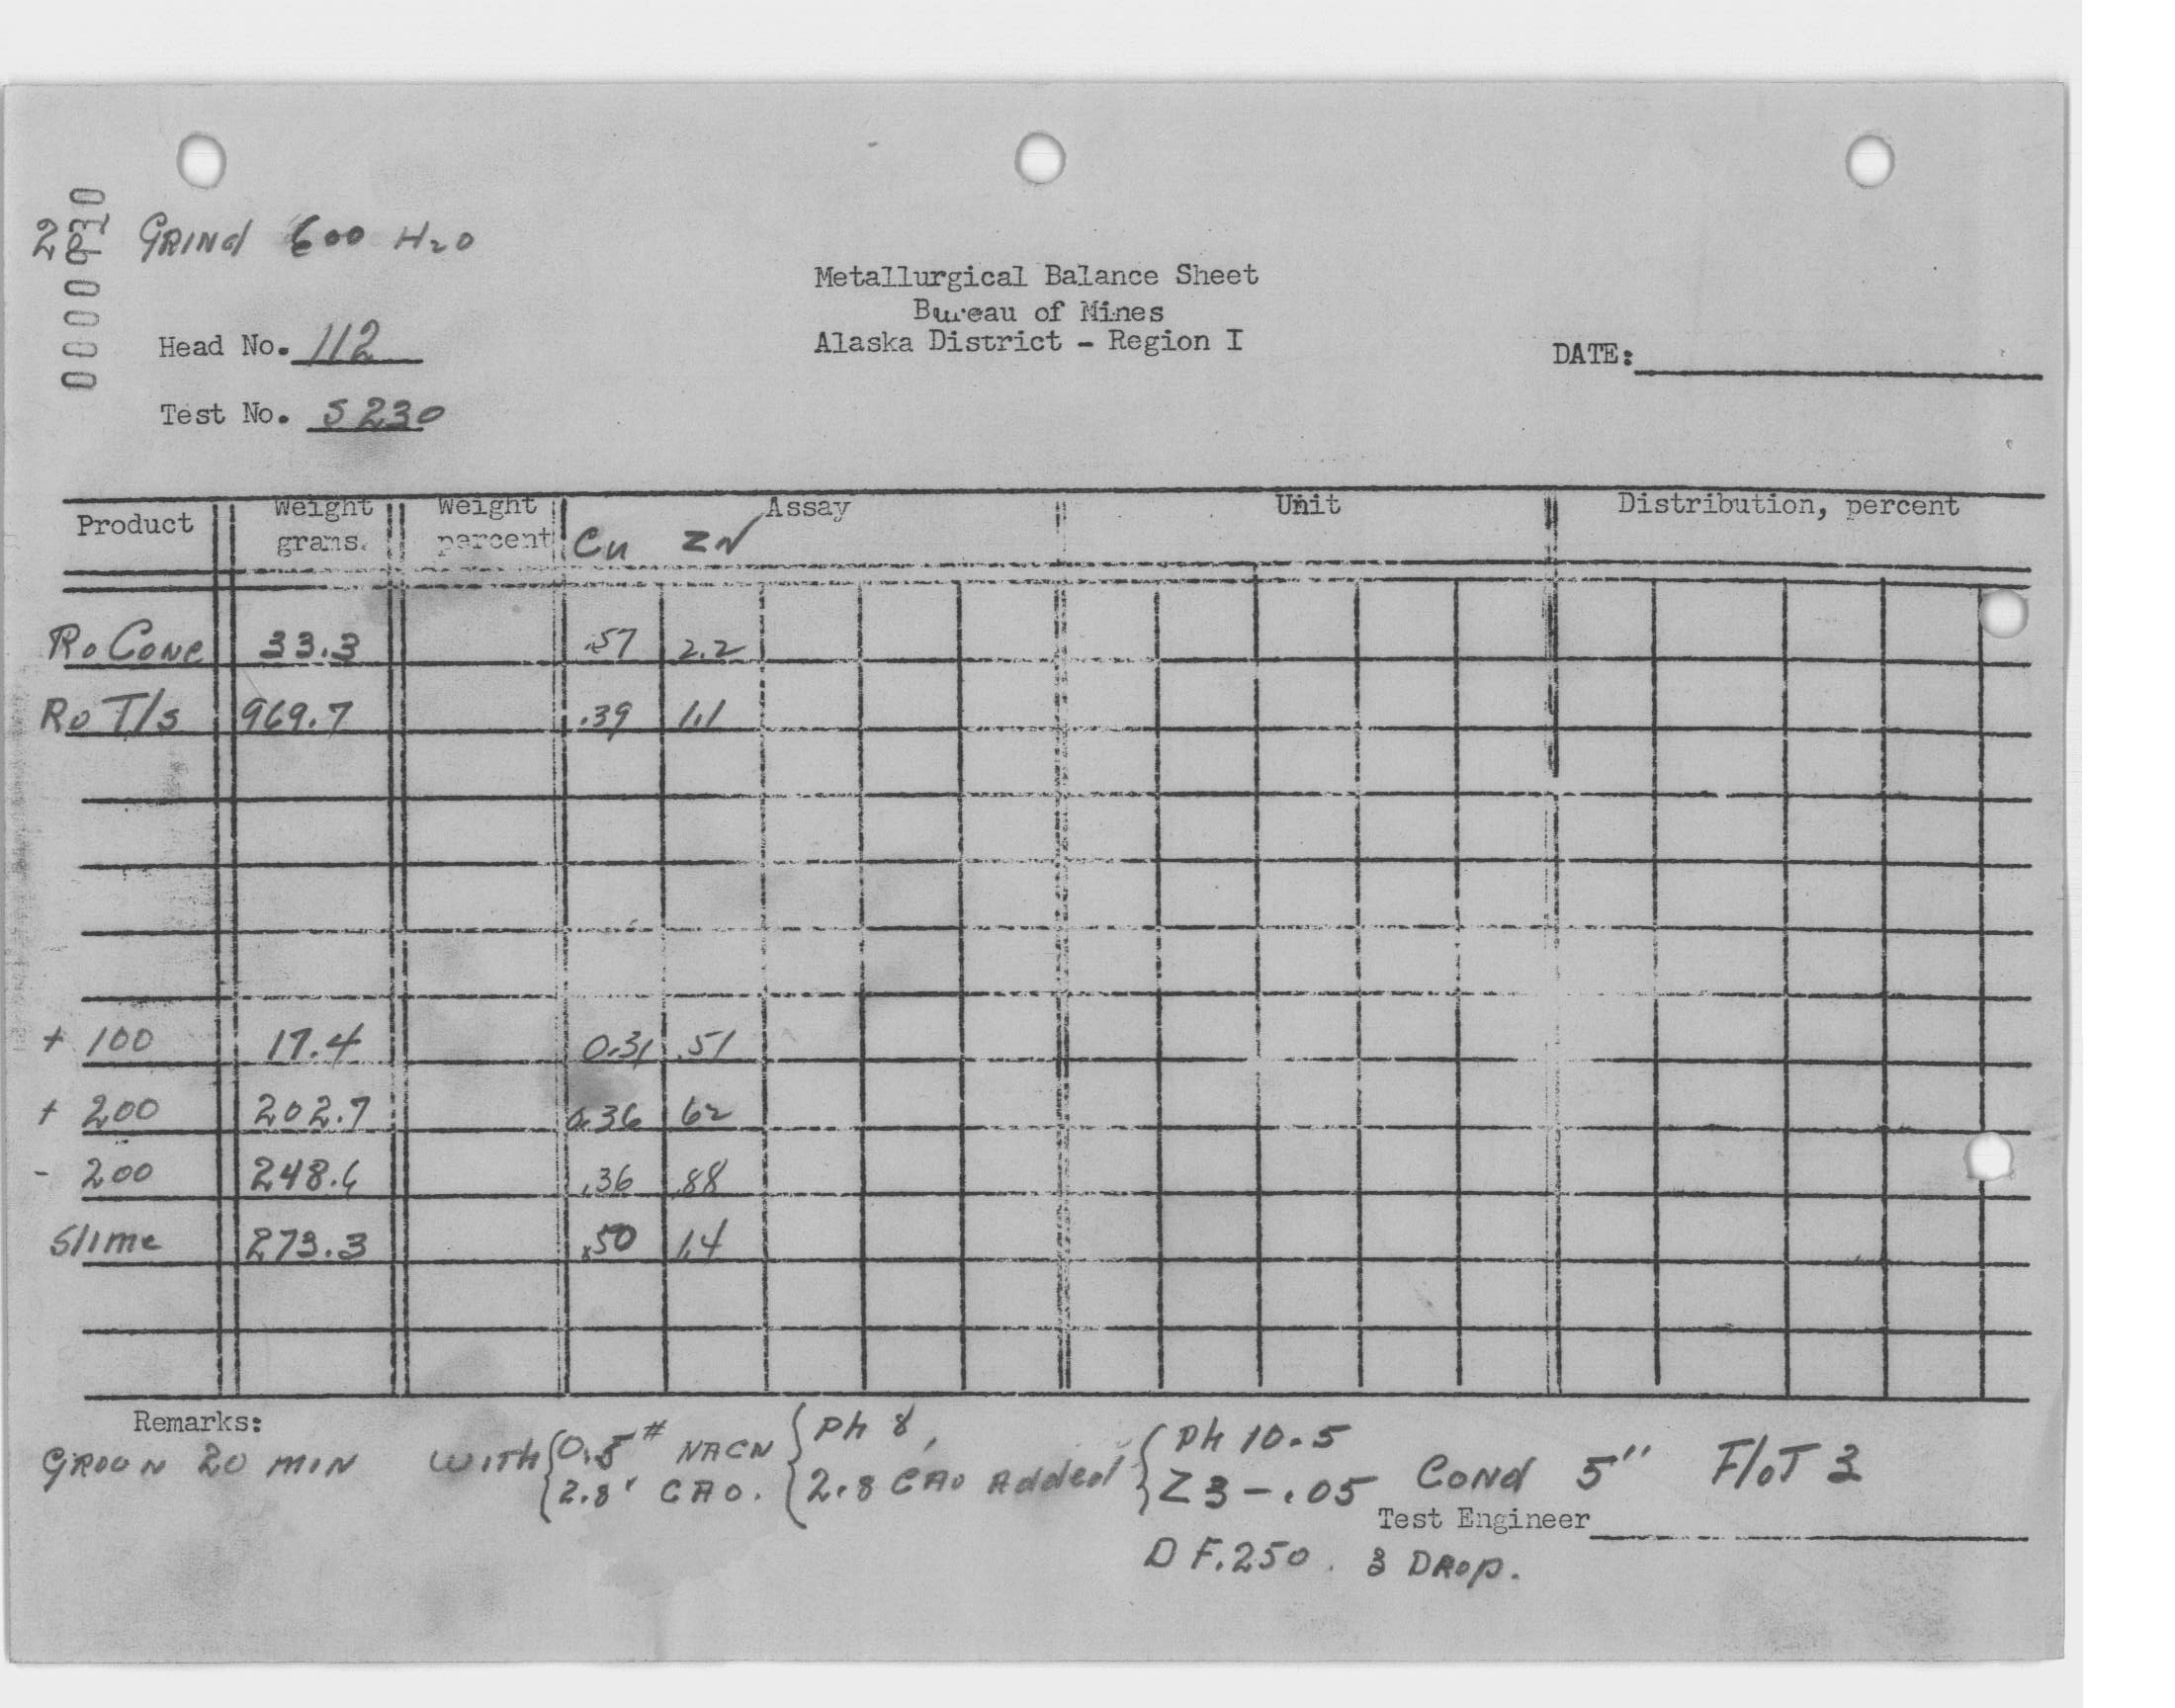 2 GRINd 600 H2O
0000930
Metallurgical Balance Sheet
Bureau of Mines
Alaska District - Region I
Head No. 112
DATE:
Test No. S230
Product Weight grams. Weight percent Assay Unit Distribution, percent
Cu ZN
Ro CONC 33.3 .57 2.2
Ro T/s 969.7 .39 1.1
+ 100 17.4 0.31 .51
+ 200 202.7 0.36 62
- 200 248.6 .36 .88
Slime 273.3 .50 1.4
Remarks:
GROUN 20 MIN WITH {0.5# NACN {Ph 8, {Ph 10.5
{2.8' CAO. {2.8 CAO Added {Z3 - .05 CONd 5" FloT 3
Test Engineer
D F.250. 3 DROP.